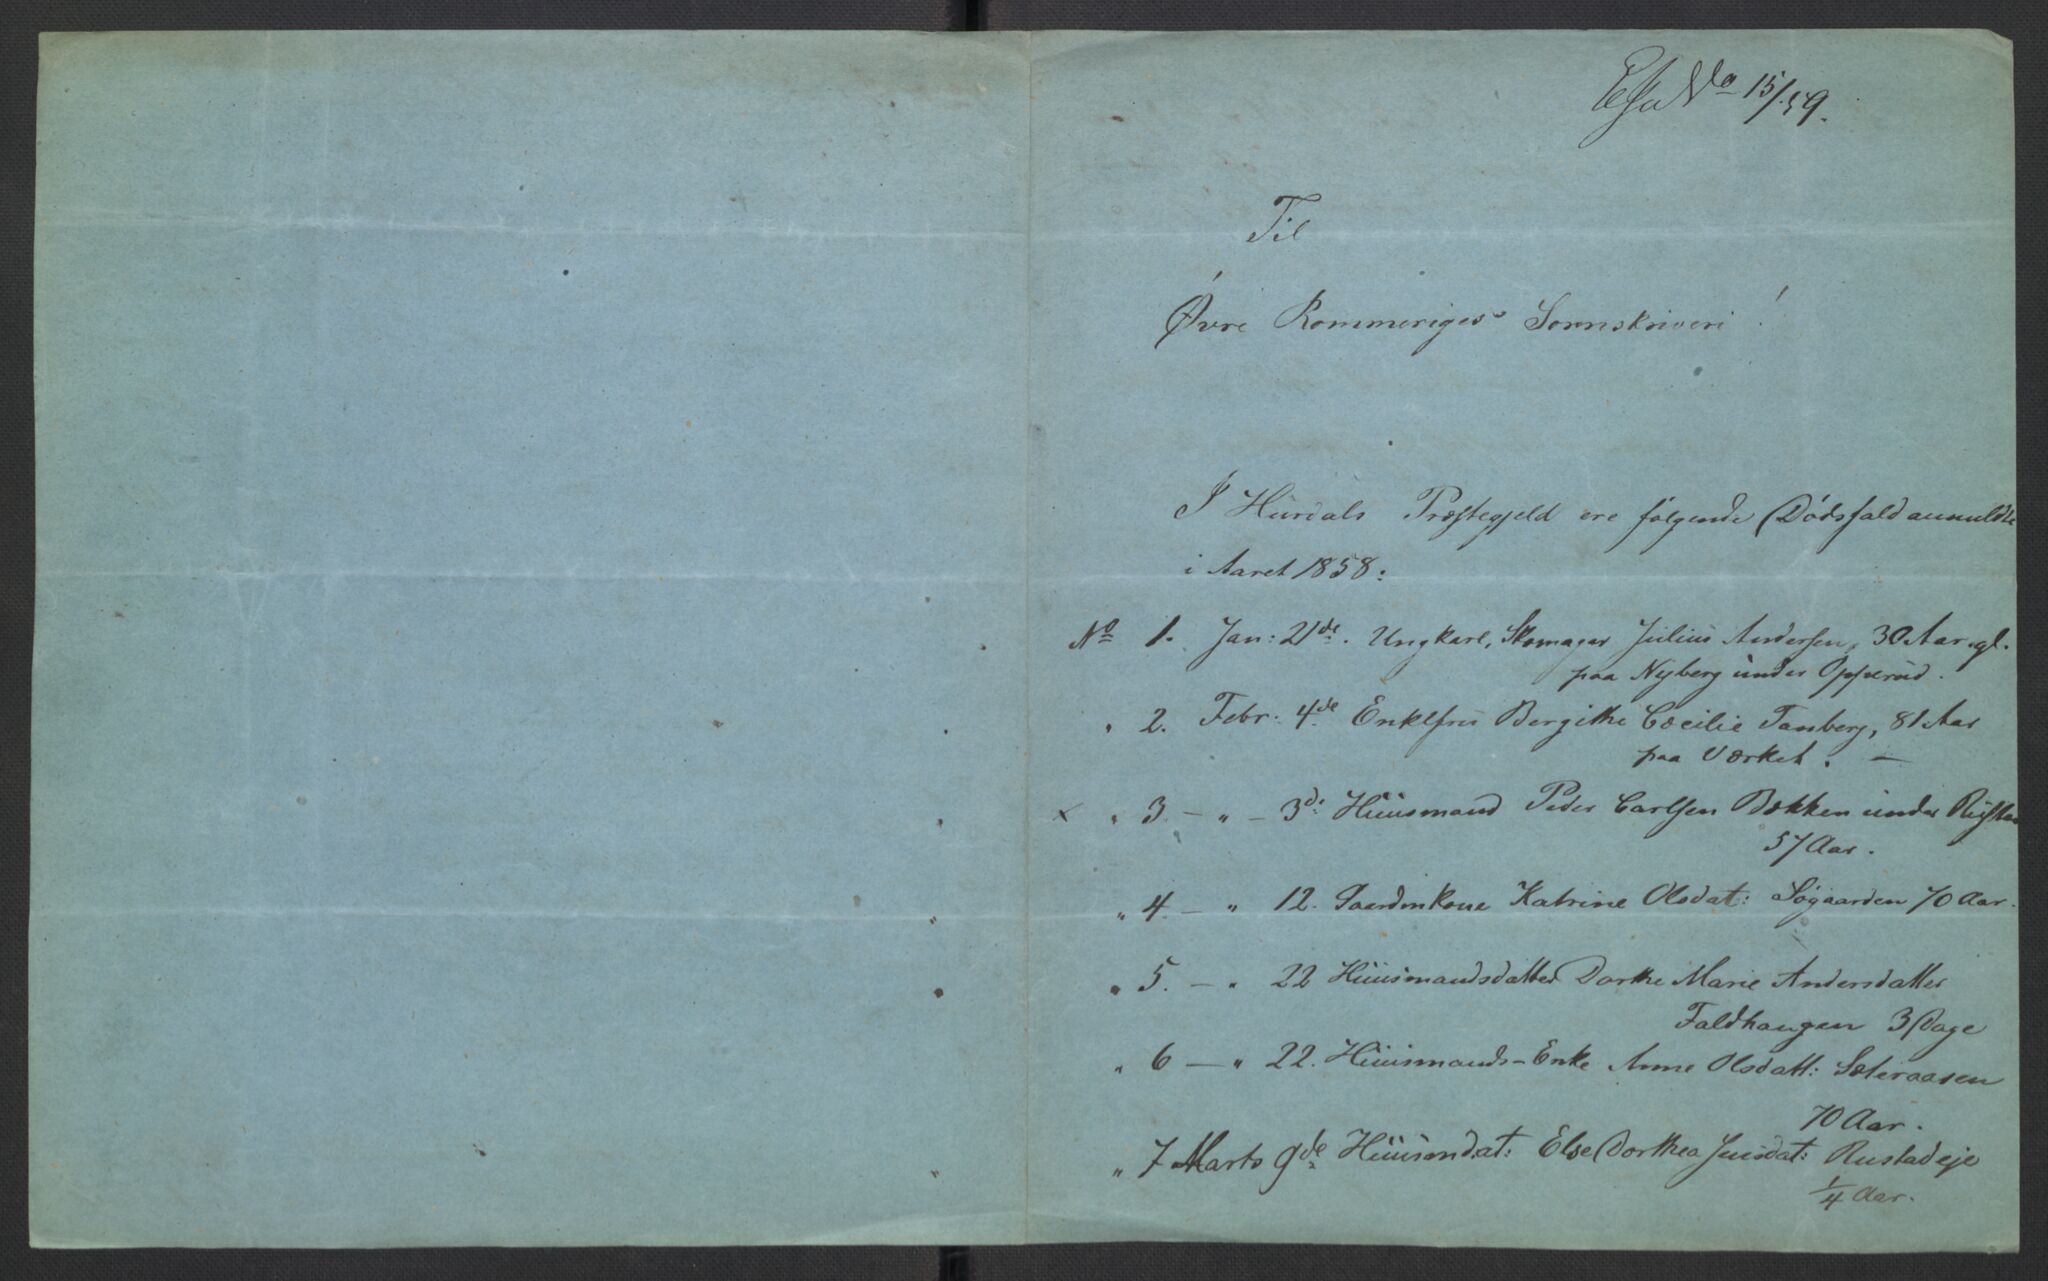 No 15/59.
Til
Øvre Rommeriges Sorenskriveri!
I Hurdals Præstegjeld ere følgende Dødsfald anmeldte
i Aaret 1858:
No 1. Jan: 21de. Ungkarl, Skomager Julius Andersen, 30 Aar gl.
paa Nyberg under Opperud.
" 2. Febr: 4de Enkefru Bergithe Cæcilie Tanberg, 81 Aar
paa Værket. —
x " 3. — " — 3de Huusmand Peder Carlsen Bækken under
57 Aar.
" 4 — " 12. Gaardmkone Katrine Olsdat: Søgaarden 70 Aar.
" 5. — " 22 Huusmandsdatter Dorthe Marie Andersdatter
Faldhaugen 3 Dage
" 6 — " 22. Huusmands-Enke Anne Olsdatt: Sæteraasen
70 Aar.
" 7 Marts 9de Huusmdat: Else Dorthea Jensdat: Rustadeje
1/4 Aar.